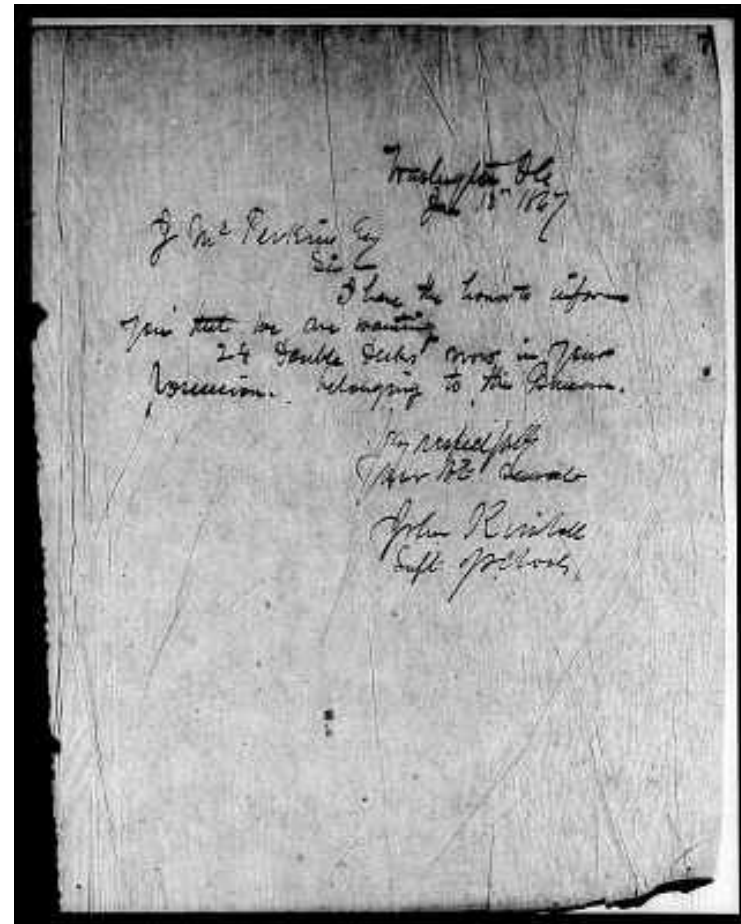 Washington DC
Jan 18" 1867
J Mc Perkins Esq
Sir
I have the honor to inform
you that we are wanting
24 Double Desks now in your
possession. belonging to this Bureau.
Very respectfully
Your Obt Servant
John Kimball
Supt of Schools.